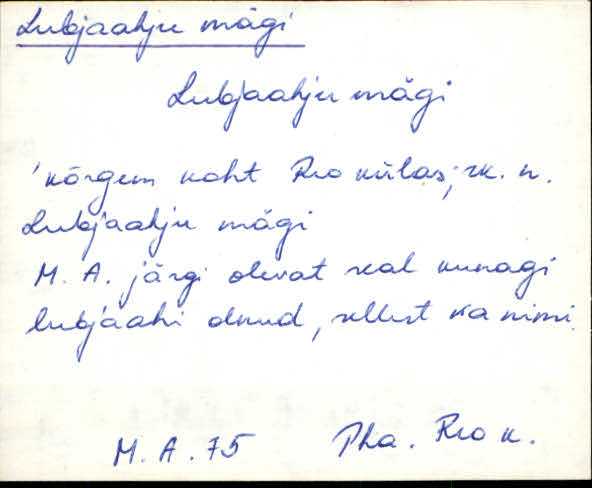 Lubjaahju mägi
Lubjaahju mägi
'kõrgem koht Reo külas; rk. n.
Lubjaahju mägi
M. A. järgi olevat seal kunagi
lubjaahi olnud, sellest ka nimi.
M. A. 75 Pha. Reo k.